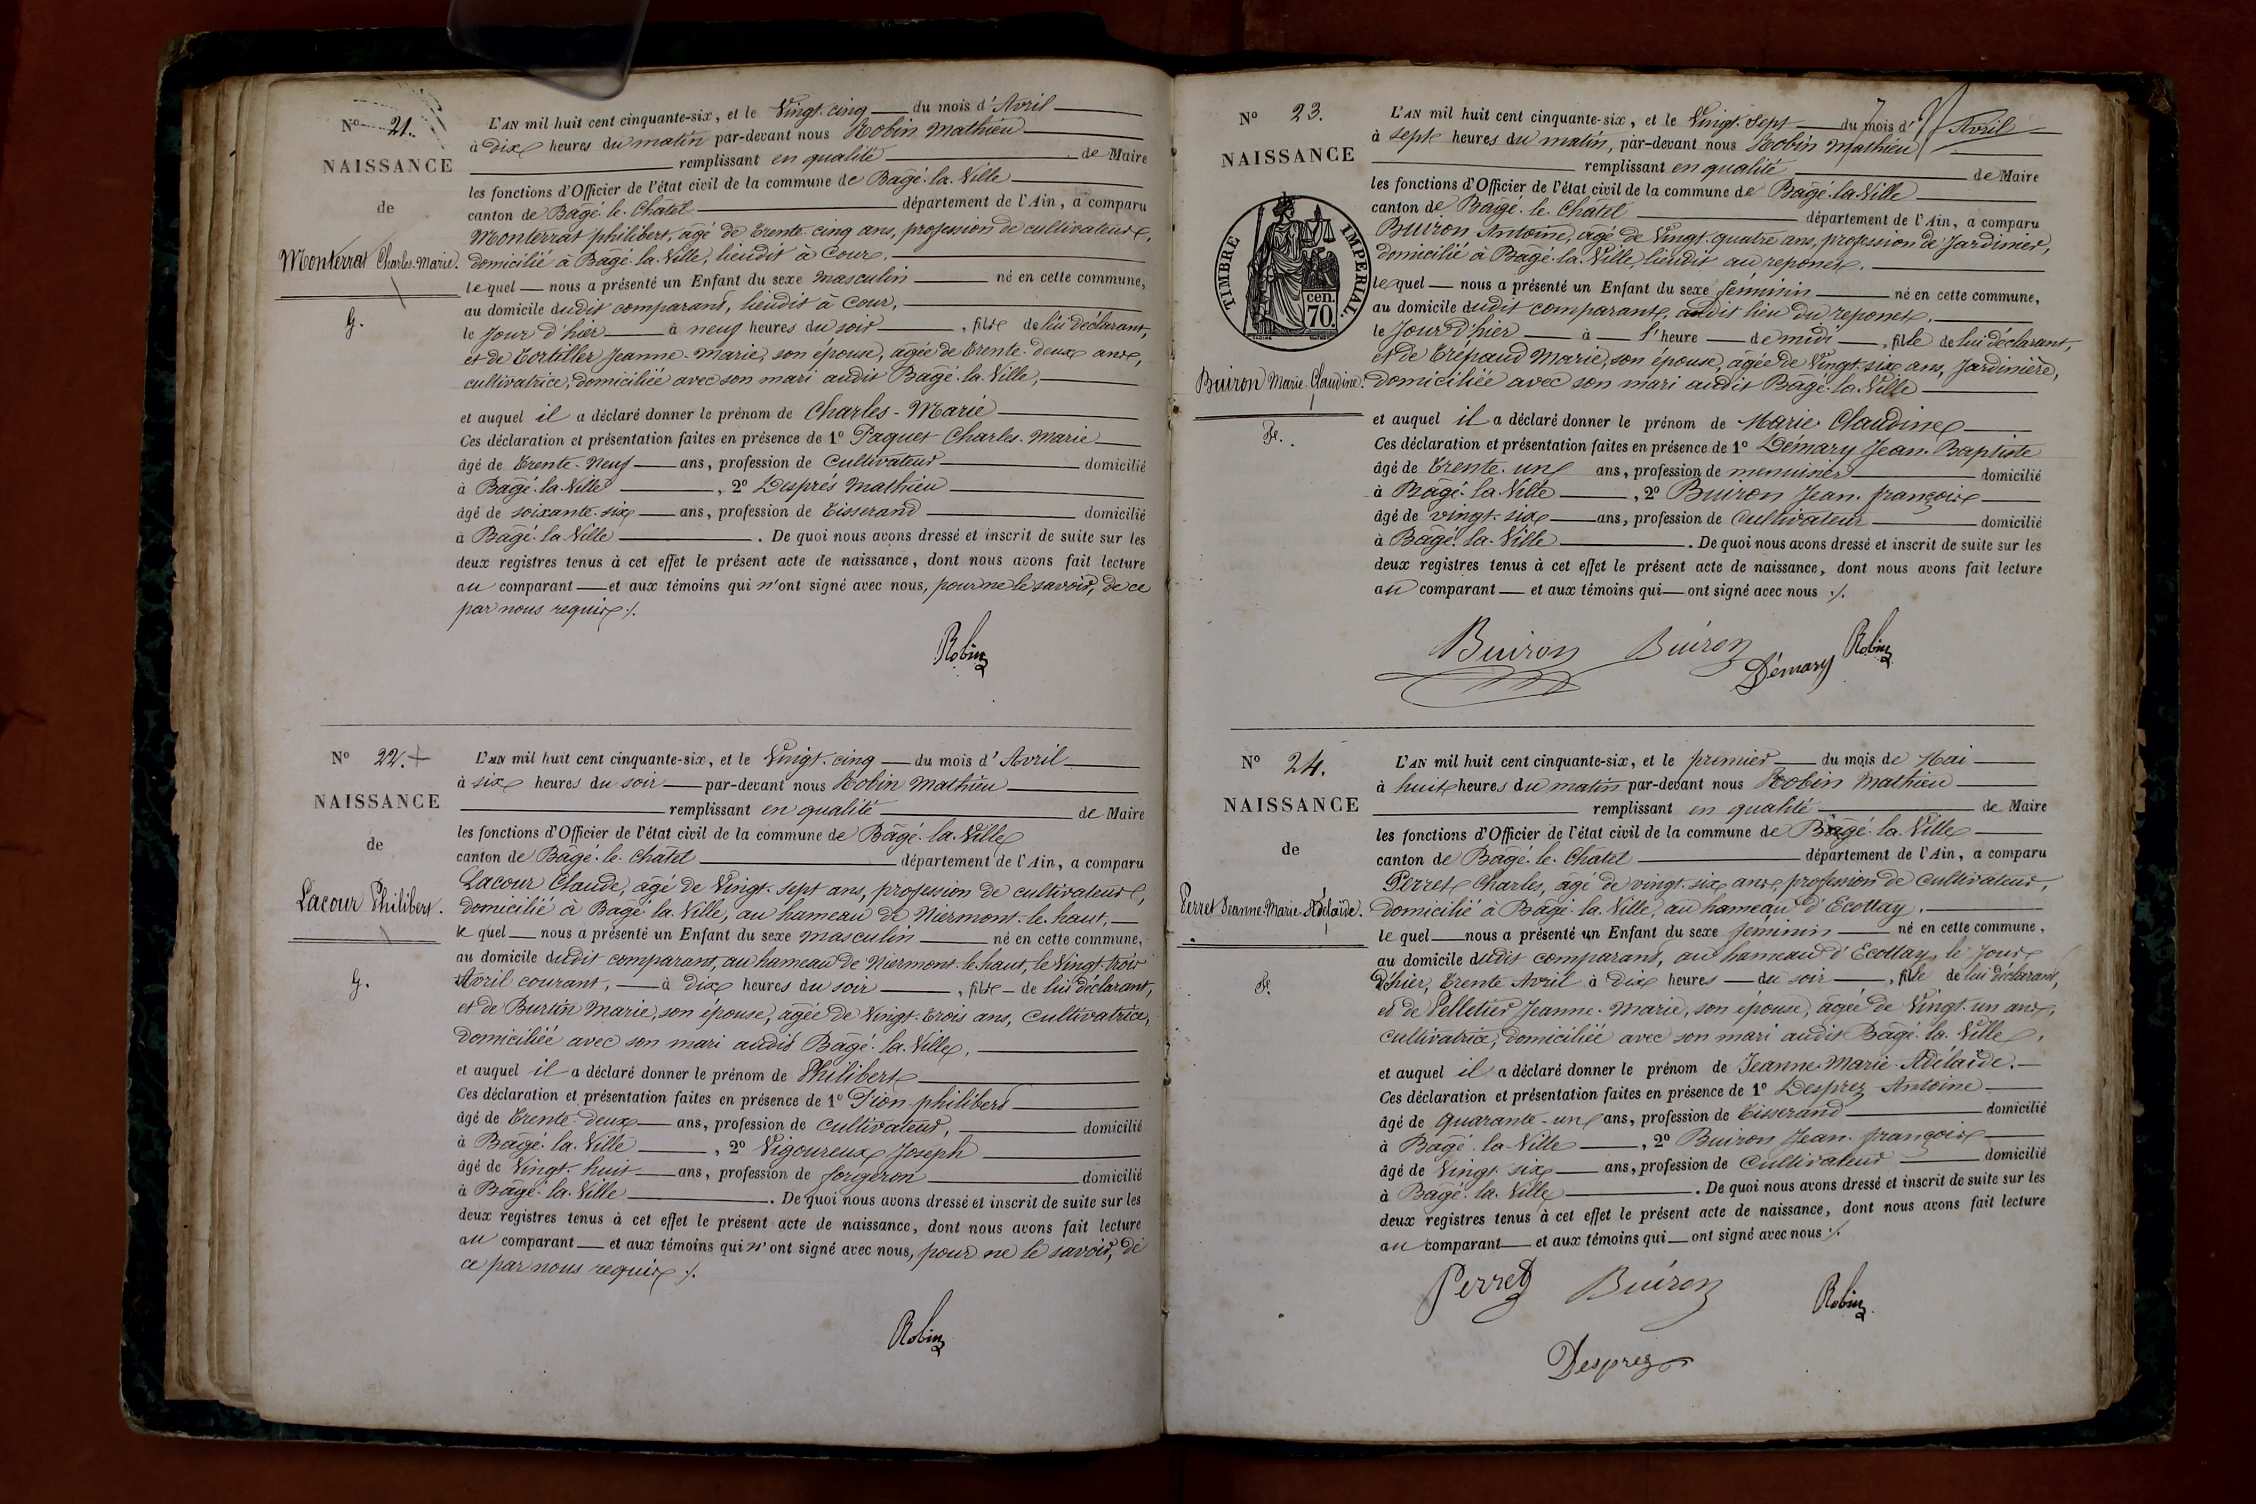 No 21.
NAISSANCE
de
Monterrat Charles-Marie.
G.
L'AN mil huit cent cinquante-six, et le Vingt-cinq du mois d'Avril
à dix heures du matin par-devant nous Robin Mathieu
remplissant en qualité de Maire
les fonctions d'Officier de l'état civil de la commune de Bâgé-la-Ville
canton de Bâgé-le-Châtel département de l'Ain, a comparu
Monterrat philibert, agé de Trente-cinq ans, profession de cultivateur,
domicilié à Bâgé-la-Ville, lieudit à Cour,
lequel nous a présenté un Enfant du sexe masculin né en cette commune,
au domicile dudit comparant, lieudit à Cour,
le Jour d'hier à neuf heures du soir, fils de lui déclarant,
et de Tortiller Jeanne-Marie, son épouse, agée de Trente-deux ans,
cultivatrice, domiciliée avec son mari audit Bâgé-la-Ville,
et auquel il a déclaré donner le prénom de Charles-Marie
Ces déclaration et présentation faites en présence de 1o Paquet Charles-Marie
âgé de Trente-Neuf ans, profession de Cultivateur domicilié
à Bâgé-la-Ville, 2o Desprès Mathieu
âgé de soixante-six ans, profession de Tisserand domicilié
à Bâgé-la-Ville. De quoi nous avons dressé et inscrit de suite sur les
deux registres tenus à cet effet le présent acte de naissance, dont nous avons fait lecture
au comparant et aux témoins qui n'ont signé avec nous, pour ne le savoir, de ce
par nous requis ./.
Robin
No 22. +
NAISSANCE
de
Lacour Philibert.
G.
L'AN mil huit cent cinquante-six, et le Vingt-cinq du mois d'Avril
à six heures du soir par-devant nous Robin Mathieu
remplissant en qualité de Maire
les fonctions d'Officier de l'état civil de la commune de Bâgé-la-Ville
canton de Bâgé-le-Châtel département de l'Ain, a comparu
Lacour Claude, âgé de Vingt-sept ans, profession de cultivateur,
domicilié à Bâgé-la-Ville, au hameau de Niermont-le-haut,
lequel nous a présenté un Enfant du sexe masculin né en cette commune,
au domicile dudit comparant, au hameau de Niermont-le-haut, le Vingt-trois
Avril courant, à dix heures du soir, fils de lui déclarant,
et de Burtin Marie, son épouse, âgée de Vingt-trois ans, Cultivatrice,
domiciliée avec son mari audit Bâgé-la-Ville,
et auquel il a déclaré donner le prénom de Philibert
Ces déclaration et présentation faites en présence de 1o Pion philibert
âgé de Trente-deux ans, profession de cultivateur, domicilié
à Bâgé-la-Ville, 2o Vigoureux Joseph
âgé de Vingt-huit ans, profession de forgeron domicilié
à Bâgé-la-Ville. De quoi nous avons dressé et inscrit de suite sur les
deux registres tenus à cet effet le présent acte de naissance, dont nous avons fait lecture
au comparant et aux témoins qui n'ont signé avec nous, pour ne le savoir, de
ce par nous requis ./.
Robin
No 23.
NAISSANCE
TIMBRE IMPERIAL.
cen.
70.
Buiron Marie-Claudine.
F.
L'AN mil huit cent cinquante-six, et le Vingt-Sept du mois d'Avril
à sept heures du matin, par-devant nous Robin Mathieu
remplissant en qualité de Maire
les fonctions d'Officier de l'état civil de la commune de Bâgé-la-Ville
canton de Bâgé-le-Châtel département de l'Ain, a comparu
Buiron Antoine, agé de Vingt-quatre ans, profession de Jardinier,
domicilié à Bâgé-la-Ville, lieudit au reponet,
lequel nous a présenté un Enfant du sexe féminin né en cette commune,
au domicile dudit comparant, audit lieu du reponet,
le Jour d'hier à l'heure de midi, fille de lui déclarant,
et de Trépaud Marie, son épouse, âgée de Vingt-six ans, Jardinière,
domiciliée avec son mari audit Bâgé-la-Ville
et auquel il a déclaré donner le prénom de Marie Claudine
Ces déclaration et présentation faites en présence de 1o Démary Jean-Baptiste
âgé de Trente-un ans, profession de menuisier domicilié
à Bâgé-la-Ville, 2o Buiron Jean-françois
âgé de vingt-six ans, profession de Cultivateur domicilié
à Bâgé-la-Ville. De quoi nous avons dressé et inscrit de suite sur les
deux registres tenus à cet effet le présent acte de naissance, dont nous avons fait lecture
au comparant et aux témoins qui ont signé avec nous ./.
Buiron Buiron Démary Robin
No 24.
NAISSANCE
de
Perret Jeanne-Marie-Adélaïde.
F.
L'AN mil huit cent cinquante-six, et le premier du mois de Mai
à huit heures du matin par-devant nous Robin Mathieu
remplissant en qualité de Maire
les fonctions d'Officier de l'état civil de la commune de Bâgé-la-Ville
canton de Bâgé-le-Châtel département de l'Ain, a comparu
Perret Charles, âgé de vingt-six ans, profession de Cultivateur,
domicilié à Bâgé-la-Ville, au hameau d'Ecottay,
lequel nous a présenté un Enfant du sexe féminin né en cette commune,
au domicile dudit comparant, au hameau d'Ecottay, le Jour
d'hier, Trente Avril à dix heures du soir, fille de lui déclarant,
et de Pelletier Jeanne-Marie, son épouse, âgée de Vingt-un ans,
cultivatrice, domiciliée avec son mari audit Bâgé-la-Ville,
et auquel il a déclaré donner le prénom de Jeanne-Marie-Adélaïde.
Ces déclaration et présentation faites en présence de 1o Desprez Antoine
âgé de Quarante-un ans, profession de Tisserand domicilié
à Bâgé-la-Ville, 2o Buiron Jean-françois
âgé de Vingt-six ans, profession de Cultivateur domicilié
à Bâgé-la-Ville. De quoi nous avons dressé et inscrit de suite sur les
deux registres tenus à cet effet le présent acte de naissance, dont nous avons fait lecture
au comparant et aux témoins qui ont signé avec nous ./.
Perret Buiron Robin
Desprez